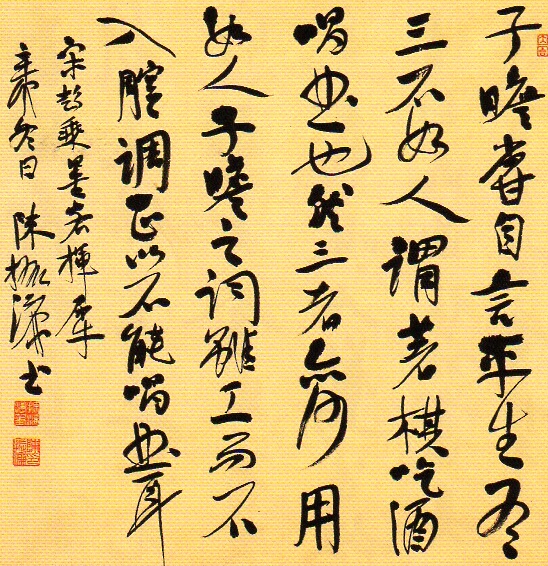 子瞻尝自言平生有
三不如人谓著棋吃酒
唱曲也然三者亦何用
如人子瞻之词虽工而不
入腔调正以不能唱曲耳
宋彭乘墨客挥犀
辛卯冬日陈振濂书